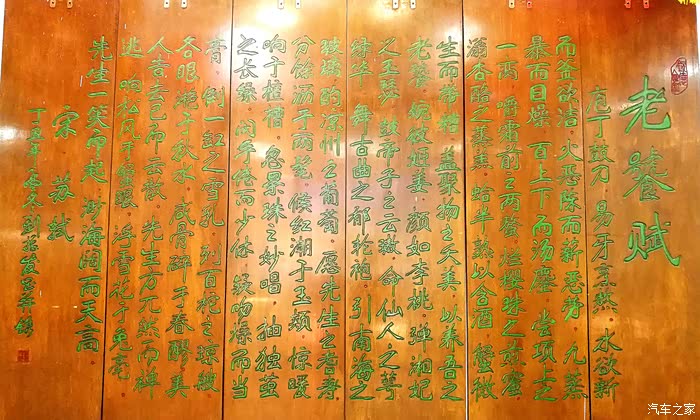 老饕赋
庖丁鼓刀 易牙烹熬 水欲新
而釜欲洁 火恶陈而薪恶劳 九蒸
暴而日燥 百上下而汤鏖 尝项上之
一脔 嚼霜前之两螯 烂樱珠之煎蜜
滃杏酪之蒸羔 蛤半熟以含酒 蟹微
生而带糟 盖聚物之夭美 以养吾之
老饕 婉彼姬姜 颜如李桃 弹湘妃
之玉瑟 鼓帝子之云璈 命仙人之萼
绿华 舞古曲之郁轮袍 引南海之
玻璃 酌凉州之葡萄 愿先生之耆寿
分余沥于两髦 候红潮于玉颊 惊暖
响于檀槽 忽累珠之妙唱 抽独茧
之长缲 闵手倦而少休 疑吻燥而当
膏 倒一缸之雪乳 列百柂之琼艘
各眼滟于秋水 咸骨醉于春醪 美
人告去已而云散 先生方兀然而禅
逃 响松风于蟹眼 浮雪花于兔毫
先生一笑而起 渺海阔而天高
宋 苏轼
丁丑年
汽车之家